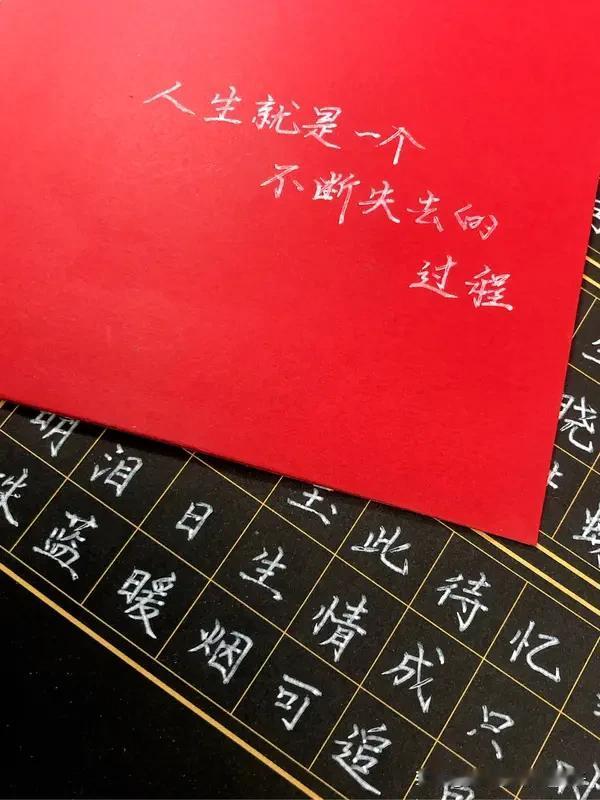 人生就是一个
不断失去的
过程
明
泪蓝
日暖
玉生烟
此情可
待成追
忆只
晓